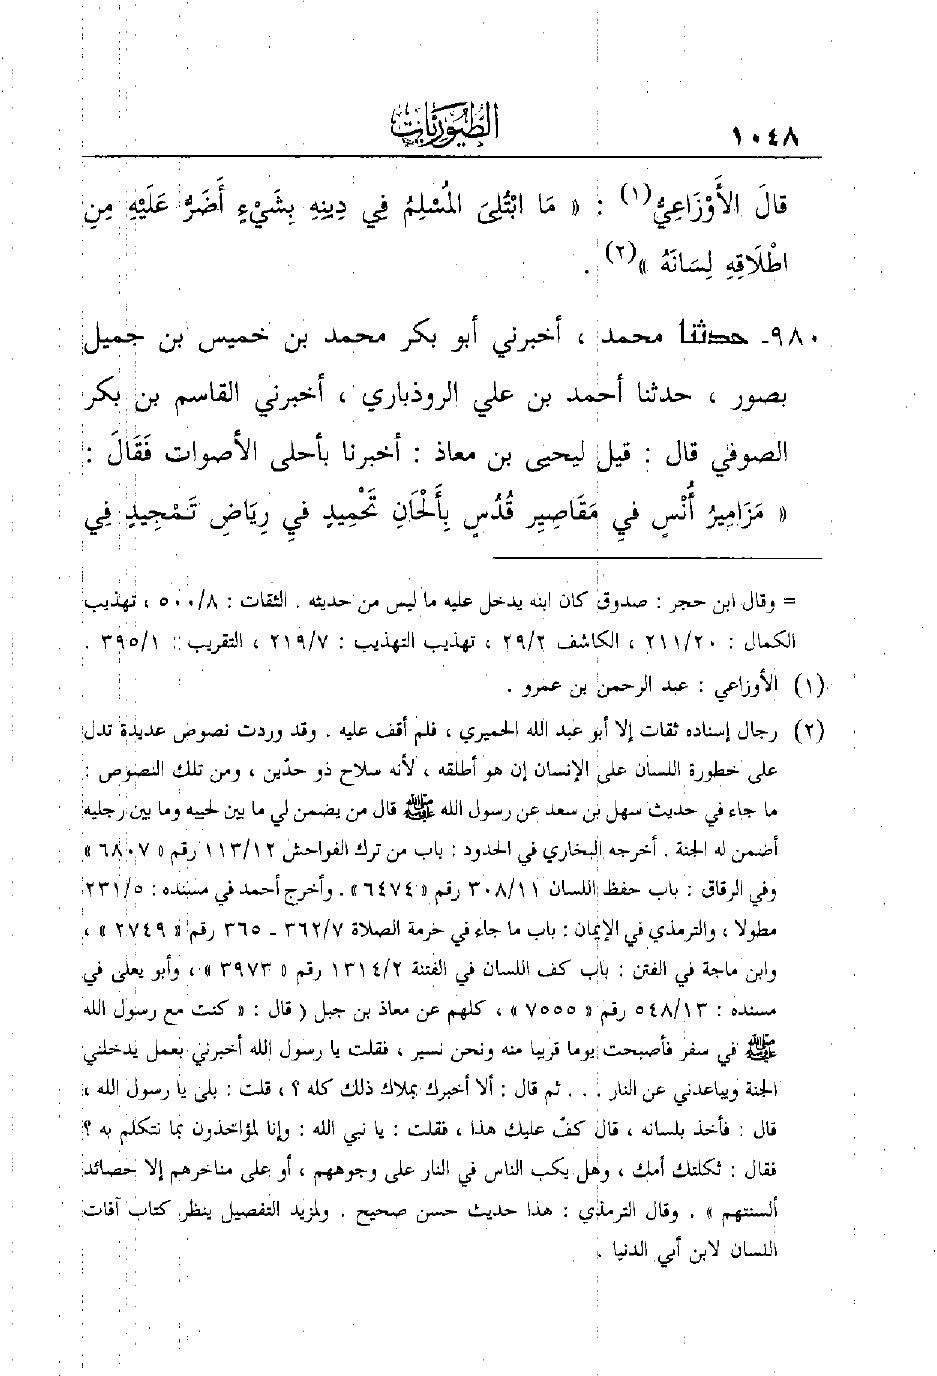 ١٠٤٨
الطيوريات
قالَ الأَوْزَاعِيُّ(١) : « مَا ابْتُلِىَ الْمُسْلِمُ فِي دِينِهِ بِشَيْءٍ أَضَرُّ عَلَيْهِ مِنِ
اطْلَاقِهِ لِسَانَهُ »(٢) .
٩٨٠- حدثنا محمد ، أخبرني أبو بكر محمد بن خميس بن جميل
بصور ، حدثنا أحمد بن علي الروذباري ، أخبرني القاسم بن بكر
الصوفي قال : قيل ليحيى بن معاذ : أخبرنا بأحلى الأصوات فَقَالَ :
« مَزَامِيرُ أُنْسٍ في مَقَاصِيرِ قُدُسٍ بِأَلْحَانِ تَحْمِيدٍ في رِيَاضِ تَمْجِيدٍ فِي
= وقال ابن حجر : صدوق كان ابنه يدخل عليه ما ليس من حديثه . الثقات : ٥٠٠/٨ ، تهذيب
الكمال : ٢١١/٢٠ ، الكاشف ٢٩/٢ ، تهذيب التهذيب : ٢١٩/٧ ، التقريب : ٣٩٥/١ .
(١) الأوزاعي : عبد الرحمن بن عمرو .
(٢) رجال إسناده ثقات إلا أبو عبد الله الحميري ، فلم أقف عليه . وقد وردت نصوص عديدة تدل
على خطورة اللسان على الإنسان إن هو أطلقه ، لأنه سلاح ذو حدّين ، ومن تلك النصوص :
ما جاء في حديث سهل بن سعد عن رسول الله ﷺ قال من يضمن لي ما بين لحييه وما بين رجليه
أضمن له الجنة . أخرجه البخاري في الحدود : باب من ترك الفواحش ١١٣/١٢ رقم « ٦٨٠٧ »
وفي الرقاق : باب حفظ اللسان ٣٠٨/١١ رقم « ٦٤٧٤ » . وأخرج أحمد في مسنده : ٢٣١/٥
مطولا ، والترمذي في الإيمان : باب ما جاء في حرمة الصلاة ٣٦٢/٧ - ٣٦٥ رقم « ٢٧٤٩ » ،
وابن ماجة في الفتن : باب كف اللسان في الفتنة ١٣١٤/٢ رقم « ٣٩٧٣ » ، وأبو يعلى في
مسنده : ٥٤٨/١٣ رقم « ٧٥٥٥ » ، كلهم عن معاذ بن جبل ( قال : « كنت مع رسول الله
ﷺ في سفر فأصبحت يوما قريبا منه ونحن نسير ، فقلت يا رسول الله أخبرني بعمل يدخلني
الجنة ويباعدني عن النار . . . ثم قال : ألا أخبرك بملاك ذلك كله ؟ ، قلت : بلى يا رسول الله ،
قال : فأخذ بلسانه ، قال كفّ عليك هذا ، فقلت : يا نبي الله : وإنا لمؤاخذون بما نتكلم به ؟
فقال : ثكلتك أمك ، وهل يكب الناس في النار على وجوههم ، أو على مناخرهم إلا حصائد
ألسنتهم » . وقال الترمذي : هذا حديث حسن صحيح . ولمزيد التفصيل ينظر كتاب آفات
اللسان لابن أبي الدنيا .